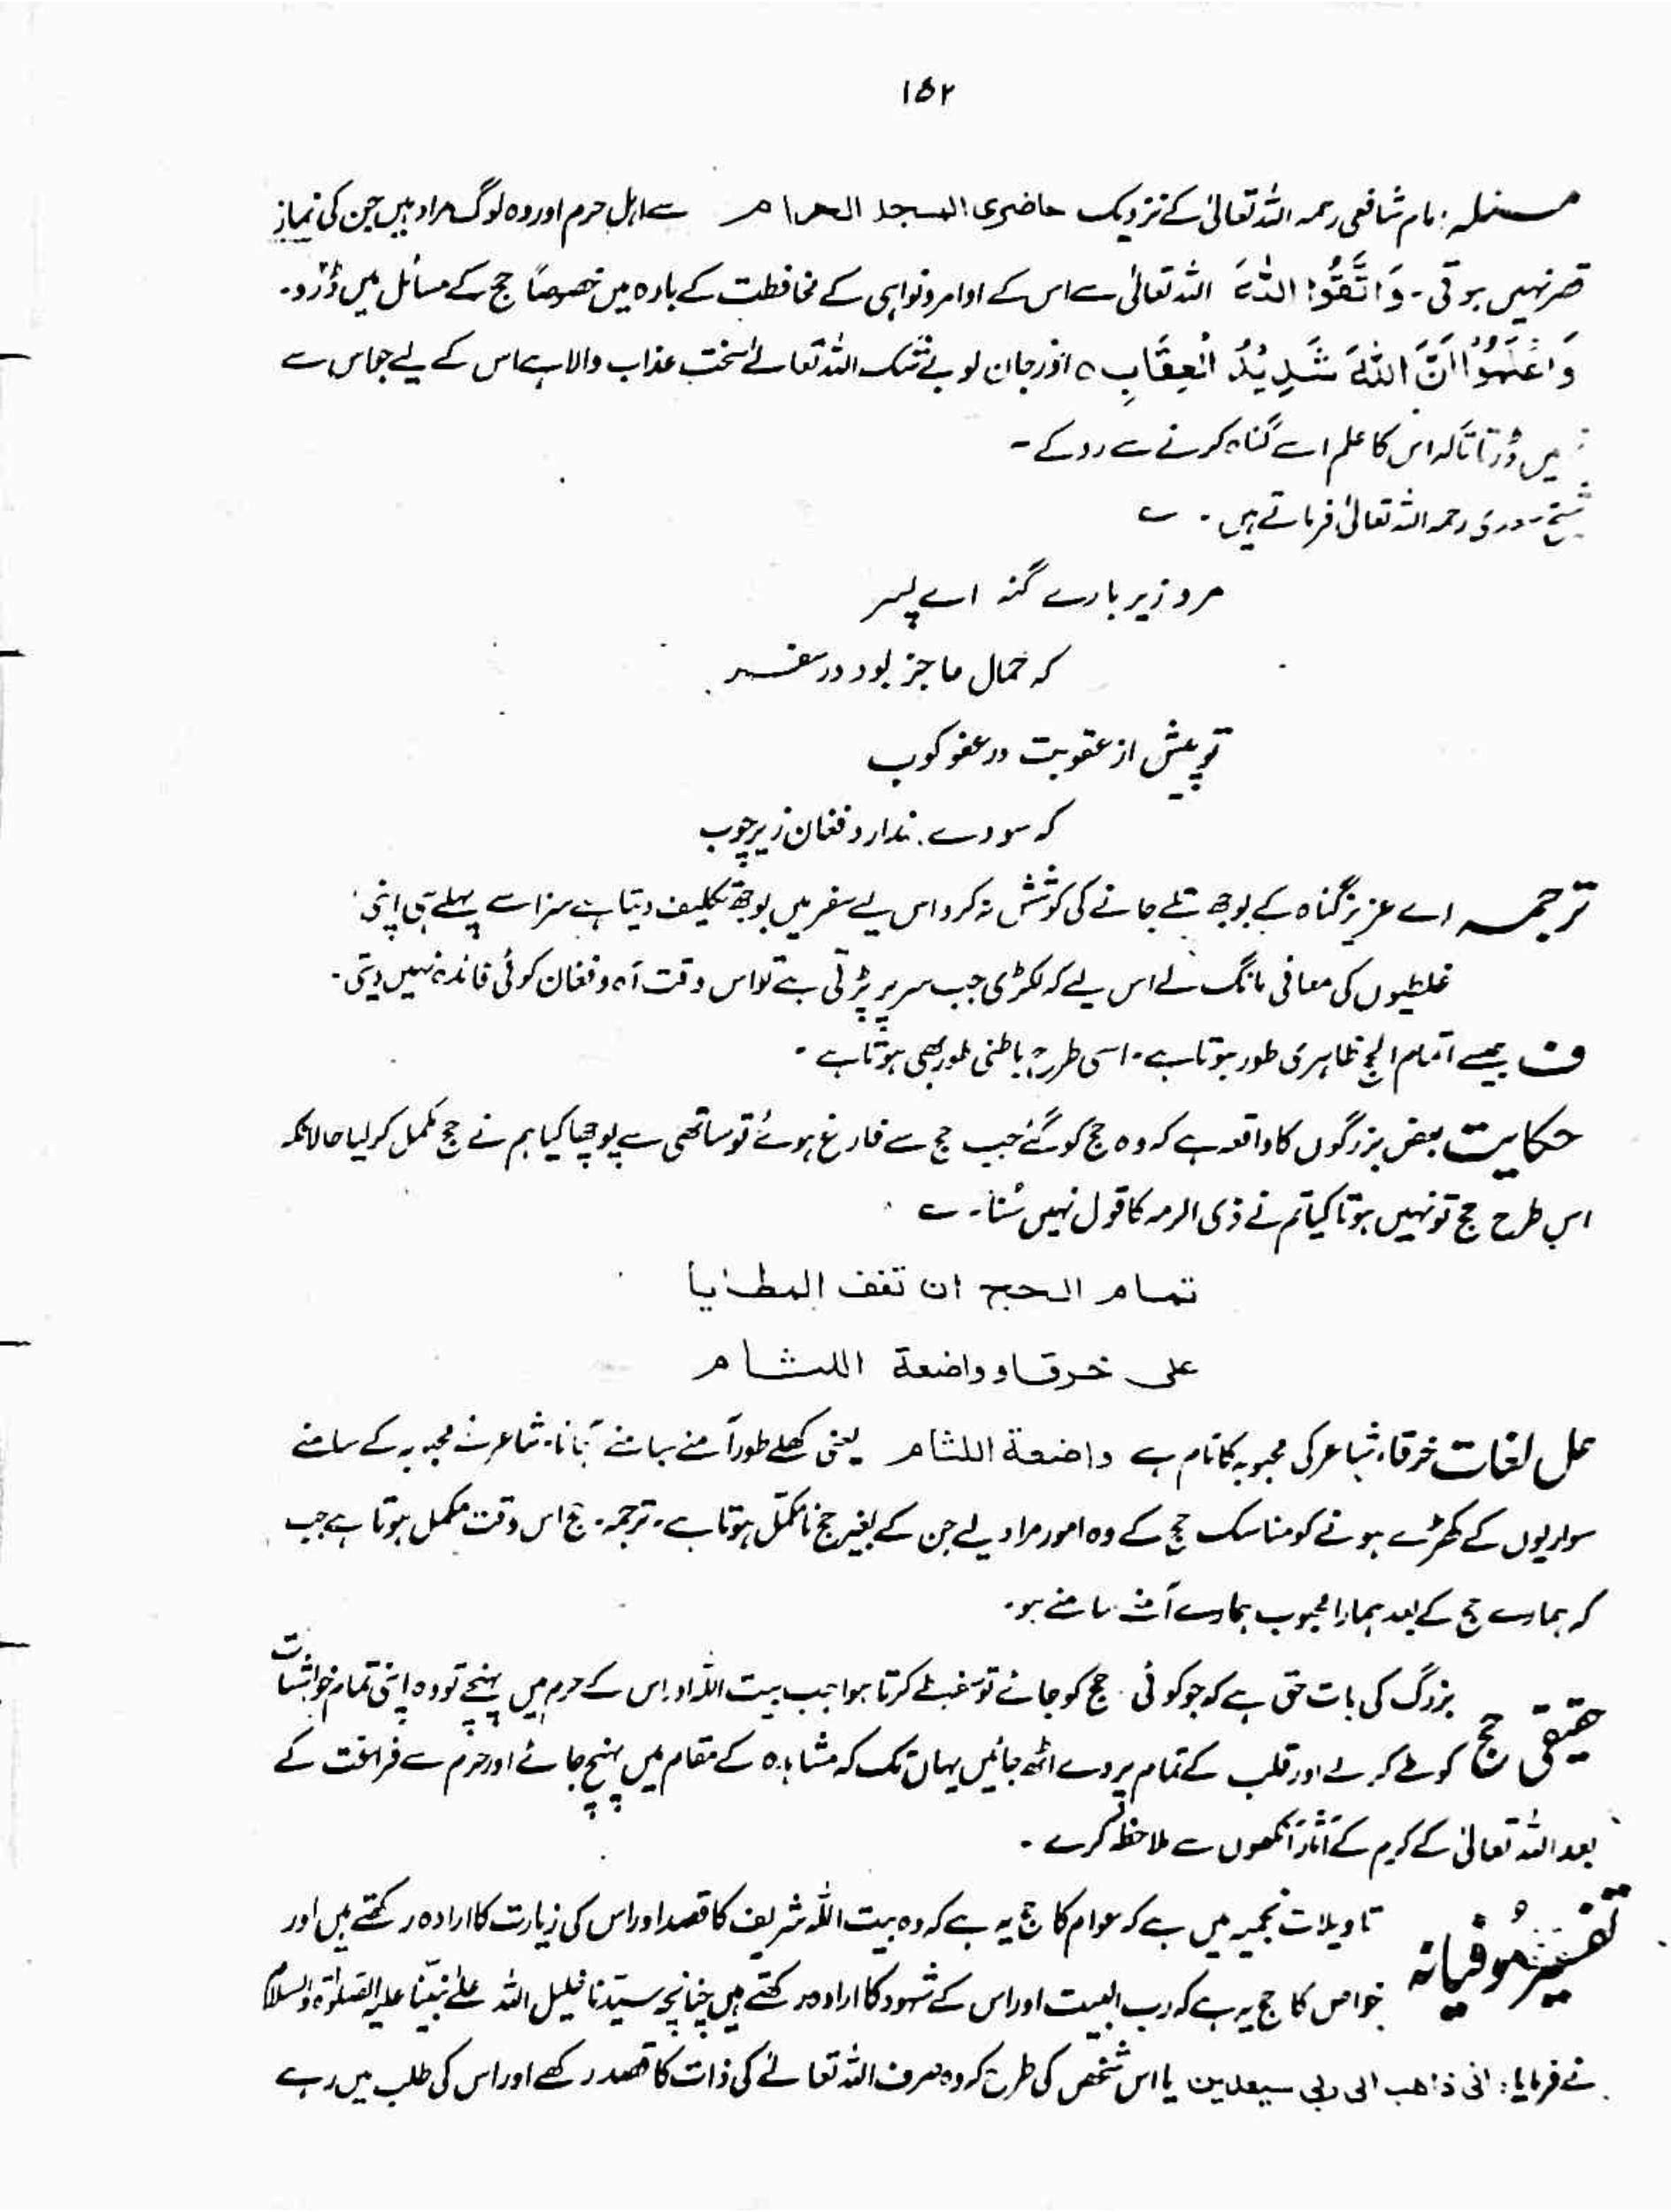 ۱۵۲
مسئلہ: امام شافعی رحمہ اللہ تعالیٰ کے نزدیک حاضری المسجد الحرام سے اہل حرم اور وہ لوگ مراد ہیں جن کی نماز
قصر نہیں ہوتی۔ وَاتَّقُوا اللّٰہَ اللہ تعالیٰ سے اس کے اوامر و نواہی کے محافظت کے بارہ میں خصوصاً حج کے مسائل میں ڈرو۔
وَاعْلَمُوْا اَنَّ اللّٰہَ شَدِیْدُ الْعِقَابِ ہ اور جان لو بے شک اللہ تعالےٰ سخت عذاب والا ہے اس کے لیے جو اس سے
نہیں ڈرتا تاکہ اس کا علم اسے گناہ کرنے سے روکے۔
شیخ سعدی رحمہ اللہ تعالیٰ فرماتے ہیں۔ ے
مرو زیر بارے گنہ اے پسر
کہ حمال عاجز بود در سفر
تو پیش از عقوبت در عفو کوب
کہ سودے ندارد فغان زیر چوب
ترجمہ اے عزیز گناہ کے بوجھ تلے جانے کی کوشش نہ کرو اس لیے سفر میں بوجھ تکلیف دیتا ہے سزا سے پہلے ہی اپنی
غلطیوں کی معافی مانگ لے اس لیے کہ لکڑی جب سر پر پڑتی ہے تو اس وقت آہ و فغان کوئی فائدہ نہیں دیتی۔
ف جیسے اتمام الحج ظاہری طور ہوتا ہے۔ اسی طرح باطنی طور بھی ہوتا ہے۔
حکایت بعض بزرگوں کا واقعہ ہے کہ وہ حج کو گئے جب حج سے فارغ ہوئے تو ساتھی سے پوچھا کیا ہم نے حج مکمل کر لیا حالانکہ
اس طرح حج تو نہیں ہوتا کیا تم نے ذی الرمہ کا قول نہیں سُنا۔ ے
تمام الحج ان تقف المطایا
علی خرقاء واضعة اللثام
حل لغات خرقاء شاعر کی محبوبہ کا نام ہے واضعة اللثام یعنی کھلے طور آمنے سامنے آجانا۔ شاعر نے محبوبہ کے سامنے
سواریوں کے کھڑے ہونے کو مناسک حج کے وہ امور مراد لیے جن کے بغیر حج نامکمل ہوتا ہے۔ ترجمہ۔ حج اس وقت مکمل ہوتا ہے جب
کہ ہمارے حج کے بعد ہمارا محبوب ہمارے آمنے سامنے ہو۔
حقیقی حج بزرگ کی بات حق ہے کہ جو کوئی حج کو جائے تو طے کرتا ہوا جب بیت اللہ اور اس کے حرم میں پہنچے تو وہ اپنی تمام خواہشات
کو طے کر لے اور قلب کے تمام پردے اٹھ جائیں یہاں تک کہ مشاہدہ کے مقام میں پہنچ جائے اور حرم سے فراغت کے
بعد اللہ تعالیٰ کے کرم کے آثار آنکھوں سے ملاحظہ کرے۔
تفسیر صوفیانہ تاویلات نجمیہ میں ہے کہ عوام کا حج یہ ہے کہ وہ بیت اللہ شریف کا قصد اور اس کی زیارت کا ارادہ رکھتے ہیں اور
خواص کا حج یہ ہے کہ رب البیت اور اس کے شہود کا ارادہ رکھتے ہیں چنانچہ سیّدنا خلیل اللہ علےٰ نبیّنا علیہ الصلوٰۃ والسلام
نے فرمایا: انی ذاھب الی ربی سیھدین یا اس شخص کی طرح کہ وہ صرف اللہ تعالےٰ کی ذات کا قصد رکھے اور اس کی طلب میں رہے